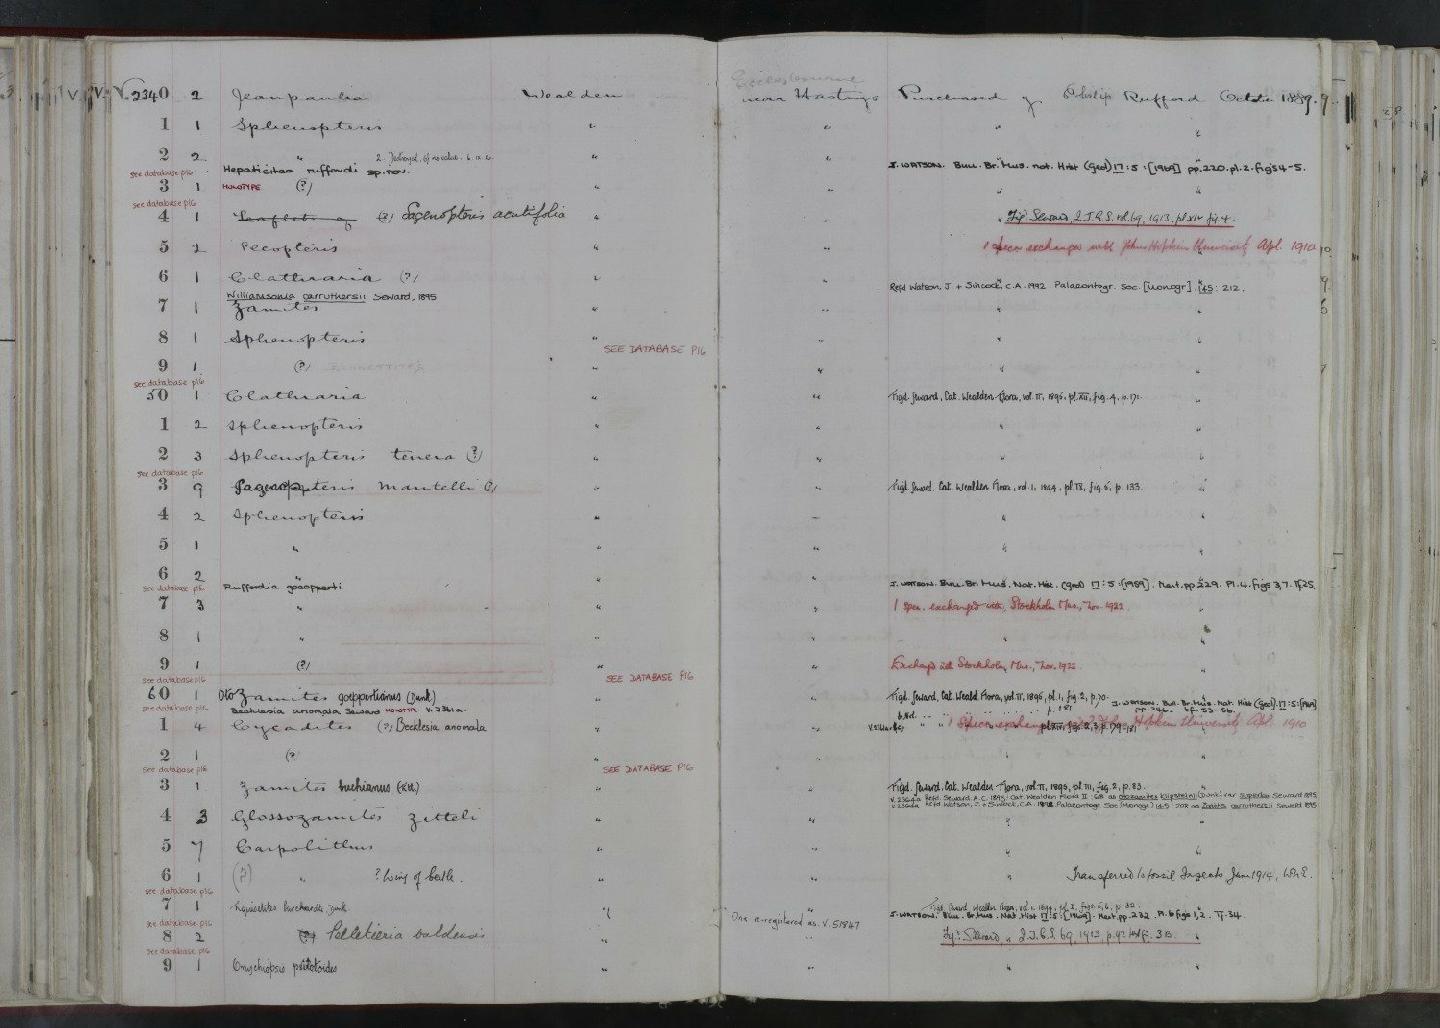 Ecclesbourne
V. 2340 2 Jeanpaulia Wealden near Hastings Purchased of Philip Rufford October 1889.
1 1 Sphenopteris " " " "
2 2 " 2. Destroyed, of no value. " "
see database p16 Hepaticites ruffordi sp. nov. J. WATSON. Bull. Br. Mus. nat. Hist (Geol) 17:5:[1969] pp.220. pl.2. figs 4-5.
3 1 HOLOTYPE (?) " " " "
see database p16
4 1 Leaflets of (?) Sagenopteris acutifolia " " Fig. Seward, Q.J.G.S. vol. 69, 1913. pl. xiv fig 4.
5 2 Pecopteris " " 1 specn exchanged with John Hopkin University Apl. 1910
6 1 Clathraria (?) " "
Williamsonia carruthersii Seward, 1895 Refd Watson, J + Sincock, C.A. 1992 Palaeontogr. Soc. [Monogr] 145: 212.
7 1 Zamites " " " "
8 1 Sphenopteris " " " "
SEE DATABASE P16
9 1 (?) " " " "
see database p16
50 1 Clathraria " " Figd. Seward, Cat. Wealden Flora, vol. II, 1895, pl. XII, fig. 4, p. 171.
1 2 Sphenopteris " " " "
2 3 Sphenopteris tenera (?) " " " "
see database p16
3 9 Sagenopteris mantelli (?) " " Figd. Seward. Cat. Wealden Flora, vol. I, 1894, pl. IX, fig. 5, p. 133.
4 2 Sphenopteris " " " "
5 1 " " " " "
6 2 " " "
see database p16 Ruffordia goepperti J. WATSON. Bull. Br. Mus. Nat. Hist. (Geol) 17:5:[1969]. Ment. pp.229. Pl.4. figs 3,7. Tf25.
7 3 " " " 1 spec. exchanged with Stockholm Mus., Nov. 1922.
8 1 " " " " "
9 1 (?) " " Exchanged with Stockholm Mus., Nov. 1922
see database p16 SEE DATABASE P16
60 1 Otozamites goeppertianus (Dunk) " " Figd. Seward, Cat. Weald Flora, vol. II, 1895, pl. I, fig. 2, p. 70.
see database p16 Becklesia anomala Seward HOLOTYPE V. 2361a. J. WATSON. Bull. Br. Mus. Nat. Hist (Geol). 17:5:[1969]
1 4 Cycadites (?) Becklesia anomala " " 1 Specn exchanged with John Hopkin University Apl. 1910
2 1 (?) " " "
see database p16 SEE DATABASE P16
3 1 Zamites buchianus (Ett.) " " Figd. Seward, Cat. Wealden Flora, vol. II, 1895, pl. III, fig. 2, p. 83.
V. 2363a Refd. Seward, A.C. 1895. Cat Wealden Flora II: 68 as Otozamites klipsteinii (Dunk) var superbus Seward 1895
V. 2363a Refd Watson, J. + Sincock, C.A. 1992 Palaeontogr. Soc (Monogr) 145 as Zamites carruthersii Seward 1895
4 3 Glossozamites zitteli " " " "
5 7 Carpolithus " " " "
6 1 (?) " ? Wing of beetle. " " " Transferred to Fossil Insects Jan 1914,
see database p16
7 1 Equisetites burchardti, Dunk " " Figd. Seward, Wealden Flora, vol. I, 1894,
see database p16 One re-registered as V. 51847 J. WATSON. Bull. Br. Mus. Nat. Hist 17:5:[1969]. Ment. pp.232. Pl. 6 figs 1,2. Tf. 34.
8 2 (?) Pelletieria valdensis " " Figd. Seward, Q.J.G.S. 69, 1913, p. 92 textf. 3B.
see database p16
9 1 Onychiopsis psilotoides " " " "